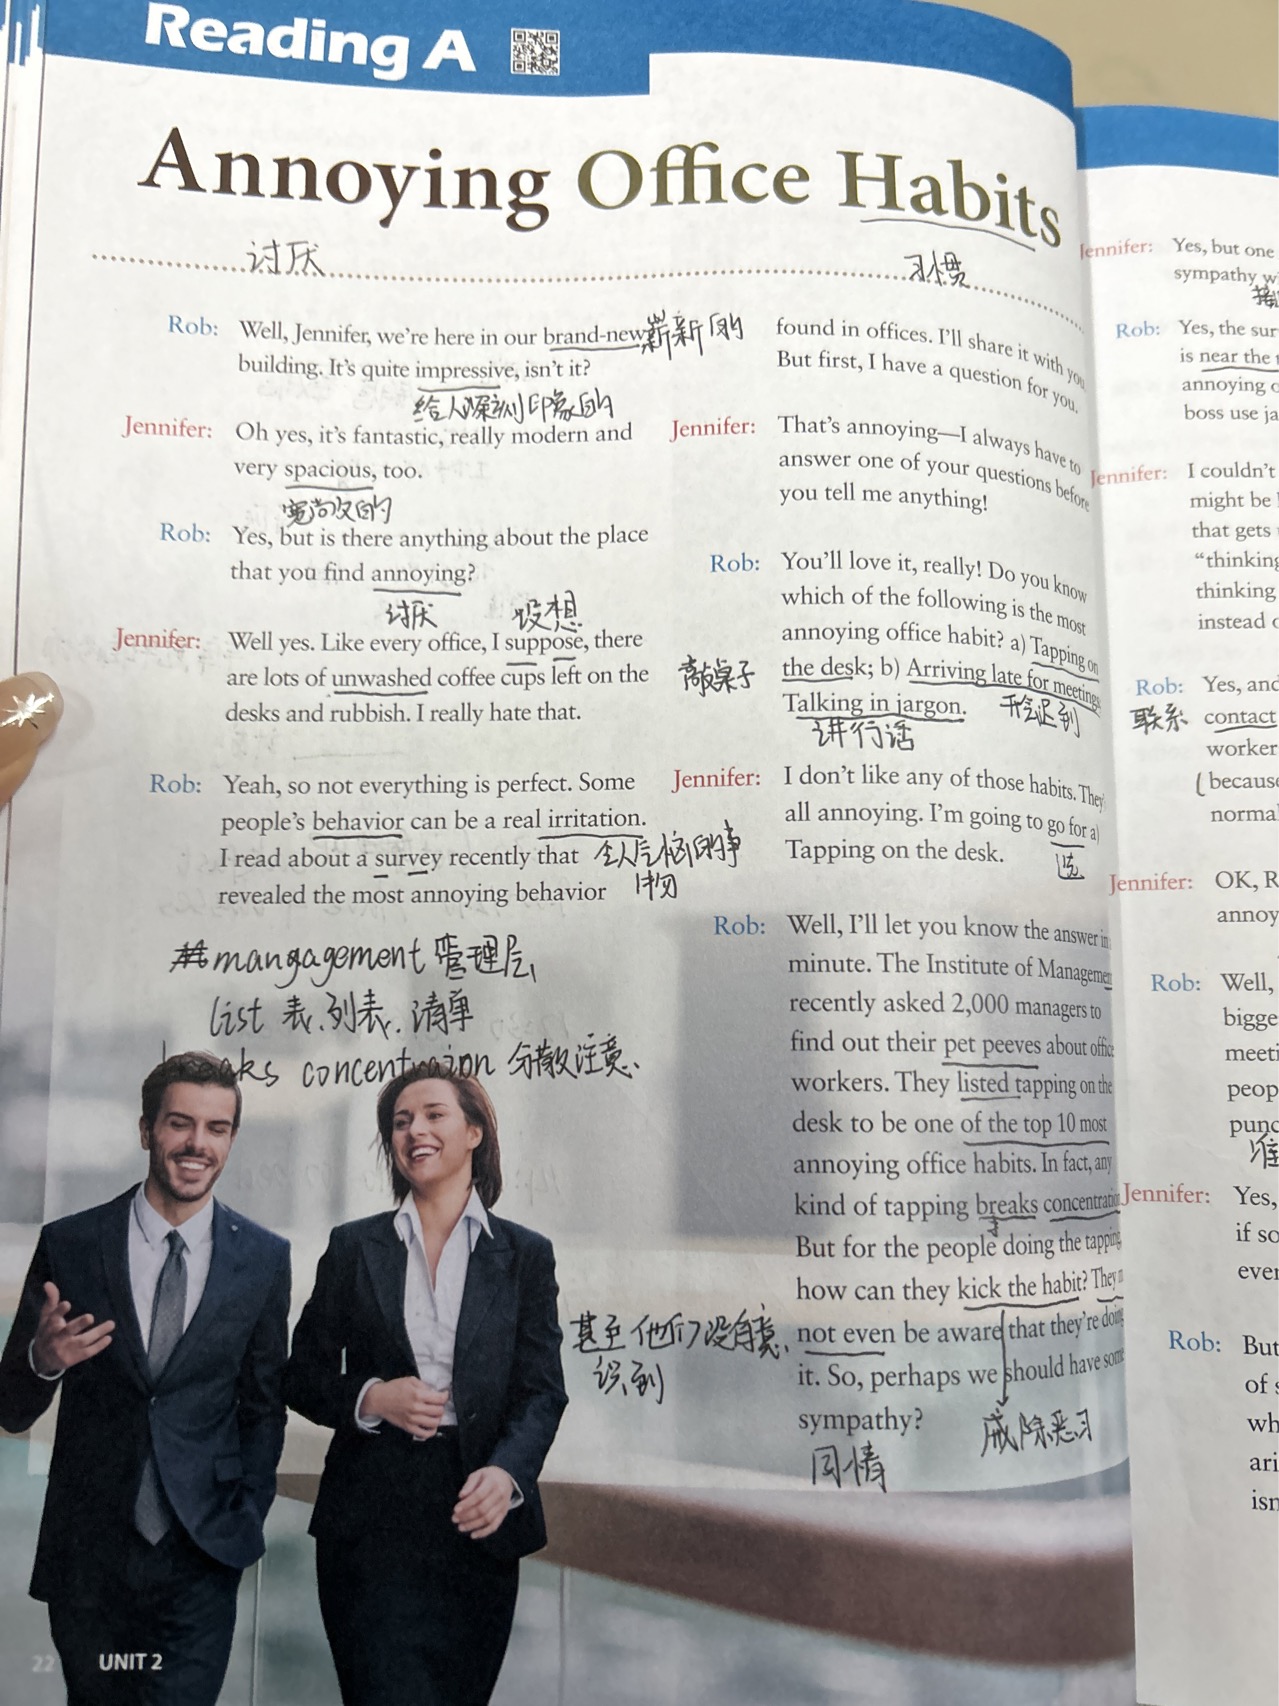 Reading A
Annoying Office Habits
讨厌
习惯
Rob: Well, Jennifer, we're here in our brand-new 崭新的
building. It's quite impressive, isn't it?
给人深刻印象的
Jennifer: Oh yes, it's fantastic, really modern and
very spacious, too.
宽敞的
Rob: Yes, but is there anything about the place
that you find annoying?
讨厌 设想
Jennifer: Well yes. Like every office, I suppose, there
are lots of unwashed coffee cups left on the
desks and rubbish. I really hate that.
Rob: Yeah, so not everything is perfect. Some
people's behavior can be a real irritation.
I read about a survey recently that 令人气恼的事
revealed the most annoying behavior 物
mangagement 管理层
list 表、列表、清单
breaks concentraion 分散注意
found in offices. I'll share it with you.
But first, I have a question for you.
Jennifer: That's annoying—I always have to
answer one of your questions before
you tell me anything!
Rob: You'll love it, really! Do you know
which of the following is the most
annoying office habit? a) Tapping on
敲桌子 the desk; b) Arriving late for meetings
Talking in jargon. 开会迟到
讲行话
Jennifer: I don't like any of those habits. They
all annoying. I'm going to go for a)
Tapping on the desk. 选
Rob: Well, I'll let you know the answer in
minute. The Institute of Managemen
recently asked 2,000 managers to
find out their pet peeves about office
workers. They listed tapping on the
desk to be one of the top 10 most
annoying office habits. In fact, any
kind of tapping breaks concentration
But for the people doing the tapping
how can they kick the habit? They
甚至他们没有意 not even be aware that they're doing
识到 it. So, perhaps we should have some
sympathy? 戒除恶习
同情
22 UNIT 2
Jennifer: Yes, but one
sympathy w
Rob: Yes, the sur
is near the
annoying
boss use ja
Jennifer: I couldn't
might be
that gets
"thinking
thinking
instead
Rob: Yes, and
联系 contact
worker
(because
norma
Jennifer: OK, R
annoy
Rob: Well,
bigge
meeti
peop
punc
准
Jennifer: Yes,
if so
ever
Rob: But
of s
wh
ari
isn